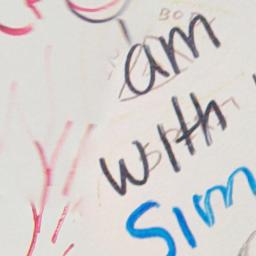 am
with
Sim